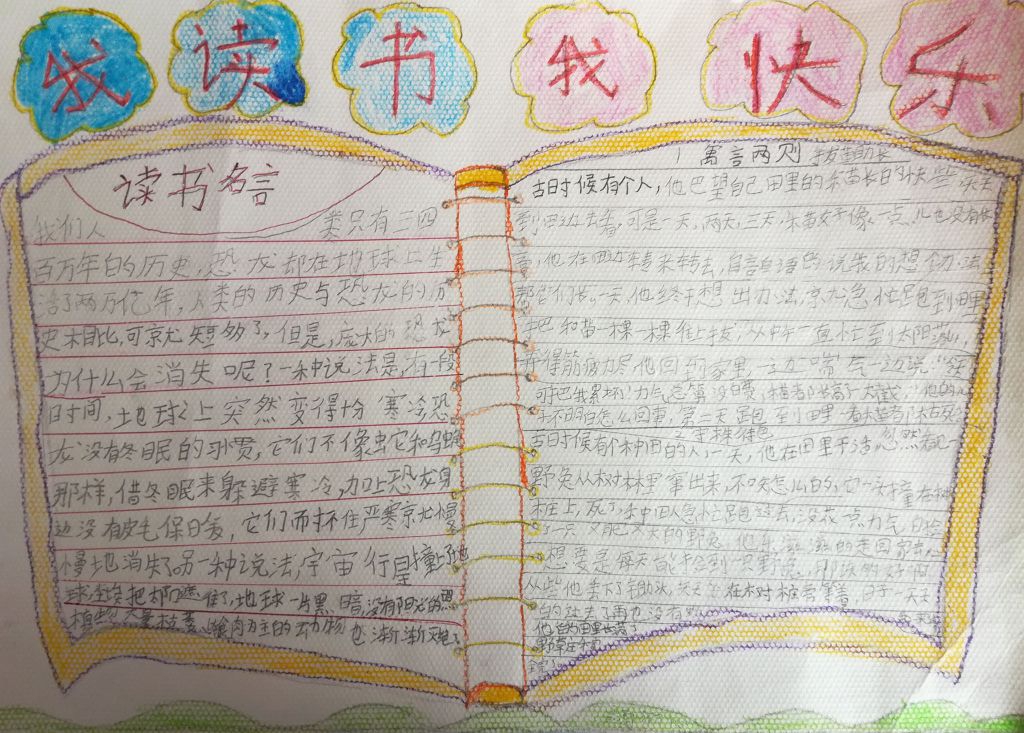 我读书我快乐
读书名言
我们人类只有三四
百万年的历史,恐龙都在地球上生
活了两万亿年,人类的历史与恐龙的历
史相比,可京尤短够了,但是,庞大的恐龙
为什么会消失呢?一种说法是,有一段
日时间,地球上突然变得十份寒冷恐
龙没有冬眠的习惯,它们不像虫它和乌
那样,借冬眠来躲避寒冷,加上恐龙身
边没有皮毛保日爰,它们而抔住严寒京尤慢
慢地消失了另一种说法,宇宙行星撞
球,把住了,地球一片黑暗,没有阳光的照
植大量枯萎,食肉为主的云力物也渐渐灭绝了
1寓言两则
古日寸候有个人,他巴望自己田里的禾苗长日的快些天天
到田边去看,可是一天,两天,三天,禾苗女子像一点儿也没有长
高,他在田边车专来车专去,自言自语的说我的想个办法
一天,他终于想出办法,京尤急忙跑到田里
把和苗一棵一棵往上拔,从中午一直忙至太阳落山,
得筋疲力尽,他回到家里,一边喘气一边说
可巴我累坏,力气总算没白费,禾苗者阝长高了一大截,他的儿
不明白怎么回事,第二天跑到田里一看禾苗者阝
古日寸候有个种田的人,一天,他在田里干活,忽然看见一
野兔从树林里窜出来,不知怎么的,它一头撞在树
桩上,死了,种田人急忙跑过去,没花一点力气,白捡
了一只又肥又大的野兔,他乐滋滋的走回家去
想要是每天能捡到一只野兔,那该多好啊
从些他丢下了锄头,天天在树桩旁等着,日子一天天
的过去了再也没有
他的田里长满
野草